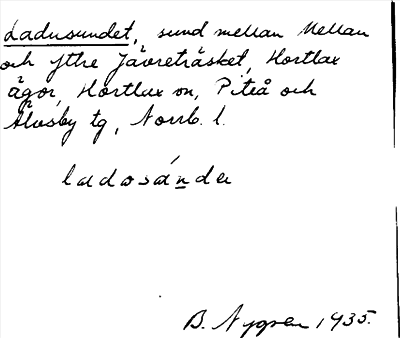 Ladusundet, sund mellan Mellan
och Yttre Jävreträsket, Hortlax
ägor, Hortlax sn, Piteå och
Älvsby tg, Norrb. l.
ladosánda
B. Nygren 1935.